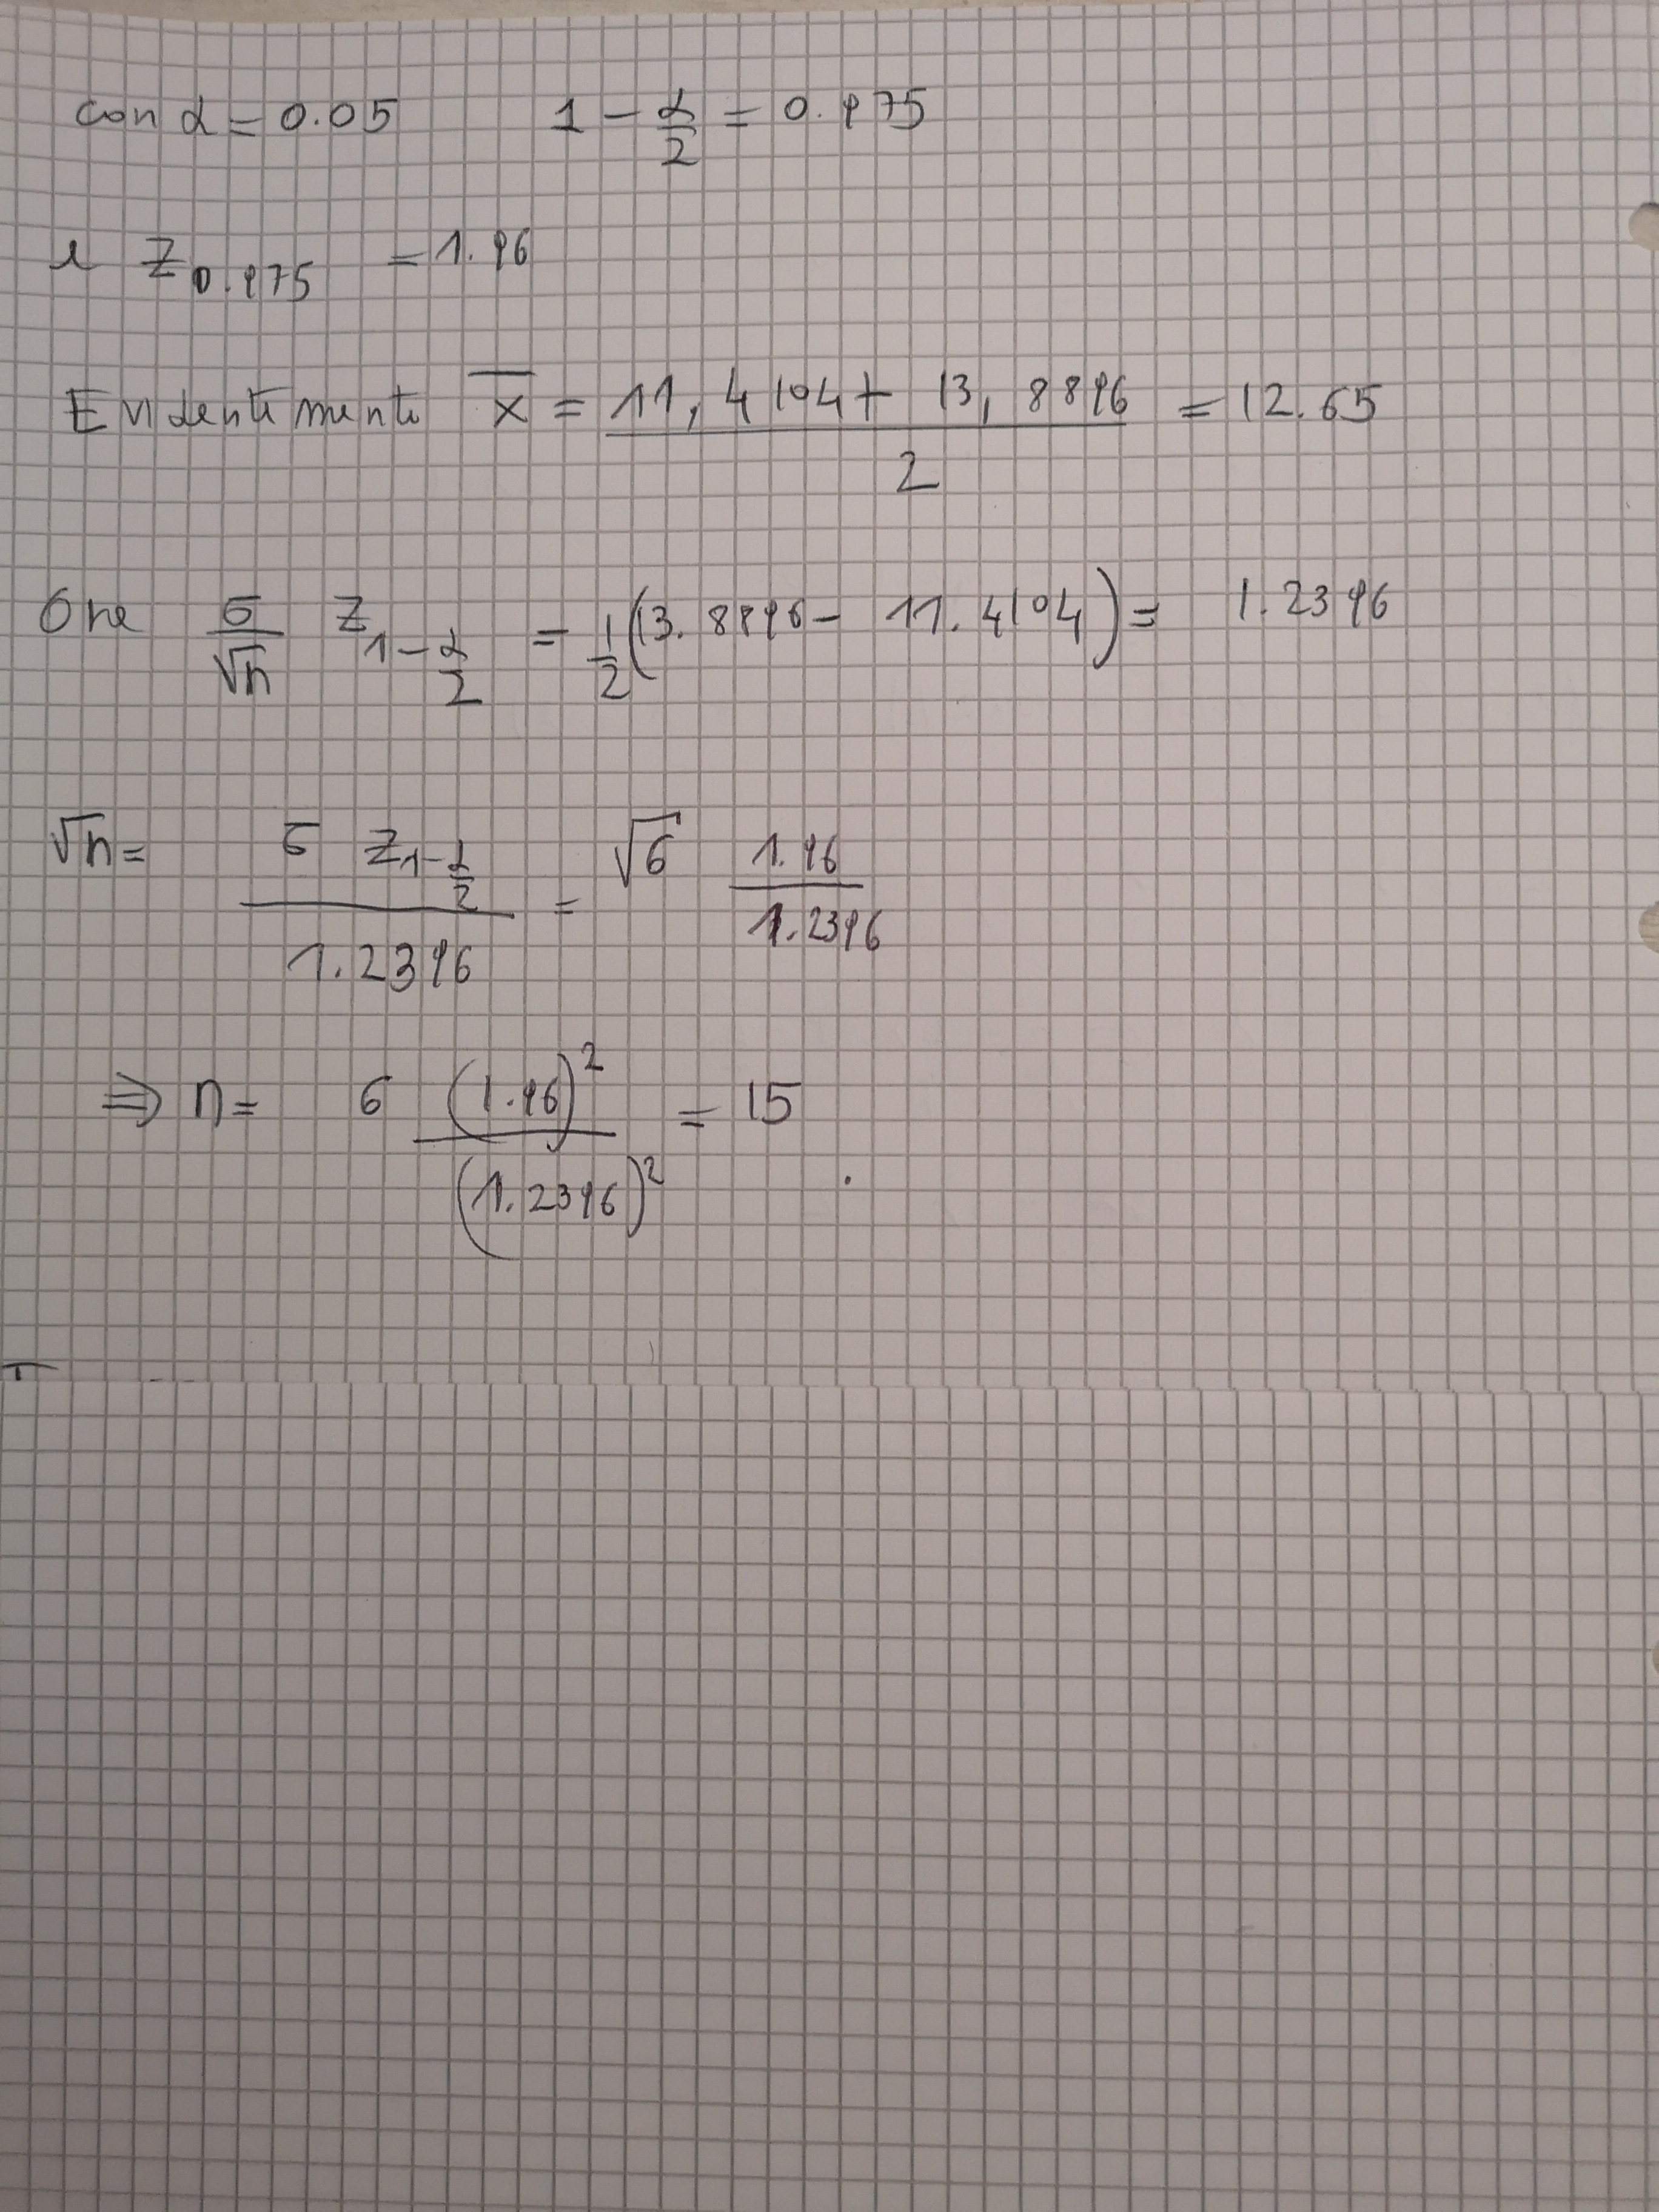 con α = 0.05 1 - α/2 = 0.975
e z_{0.975} = 1.96
Evidentemente \overline{x} = \frac{11,4104 + 13,8896}{2} = 12.65
Ora \frac{σ}{\sqrt{n}} z_{1-\frac{α}{2}} = \frac{1}{2}(13.8896 - 11.4104) = 1.2396
\sqrt{n} = \frac{σ z_{1-\frac{α}{2}}}{1.2396} = \sqrt{6} \frac{1.96}{1.2396}
⇒ n = 6 \frac{(1.96)^2}{(1.2396)^2} = 15 .